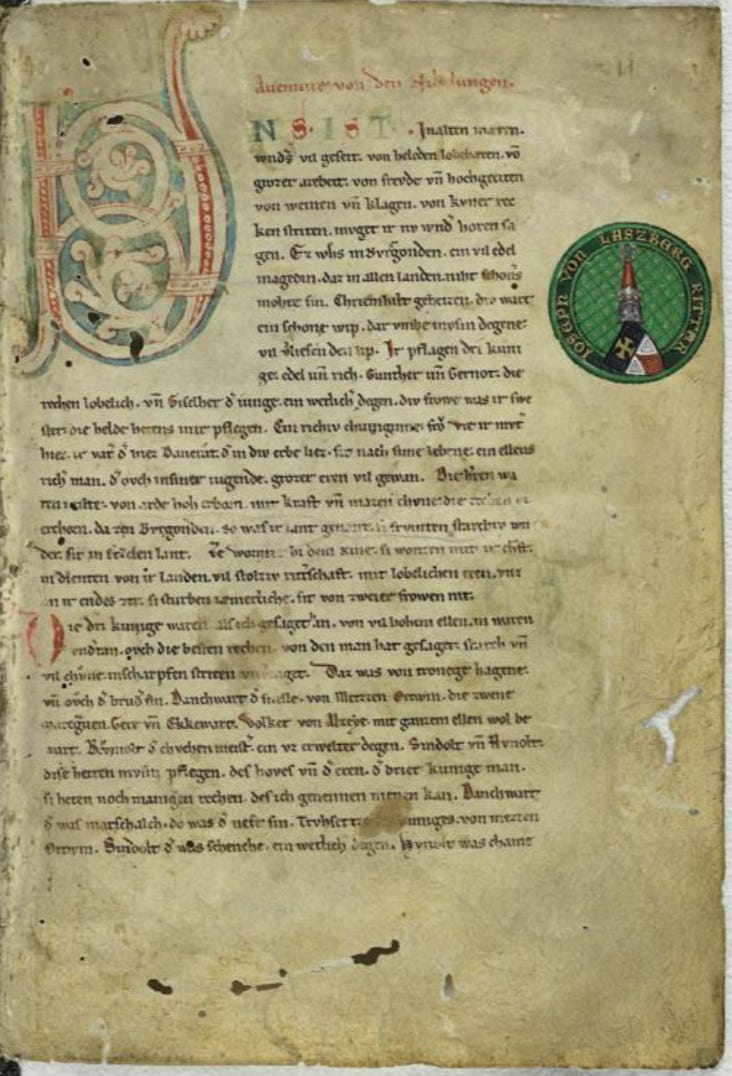 Auenture von den Nibelungen.
NS. IST. Jn alten mæren.
wnd͛s vil geseit. von heleden lobebæren. võ
grozer arebeit. von frevde vñ hochgeciten
von weinen vñ klagen. von kvner rec
ken striten. mvget ir nv wnd͛ horen sa
gen. Ez whs in Bvrgonden. ein vil edel
magedin. daz in allen landen. niht schoners
mohte sin. Chriemhilt geheizen. div wart
ein schone wip. dar vmbe mvsin degene
vil vliesen den lip. Ir pflagen dri kuni
ge. edel uñ rich. Gunther uñ Gernot. die
rechen lobelich. vñ Giselher d͛ iunge. ein wetlich͛ degen. div frowe was ir swe
ster die helde hetens inir pflegen. Ein richiv chuniginne. frŏ vte ir mvt͛
hiez. ir vat͛ d͛ hiez Dancrat. d͛ in div erbe liez. sit nach sime lebene. ein ellens
rich͛ man. d͛ ovch insiner iugende. grozer eren vil gewan. Die h͛ren wa
ren milte. von arde hoh erborn. mit kraft vñ mazen chvne die rechen er
chorn. da zen Bvrgonden. so was ir lant genant. si frvmten starchiv wn
der. sit in Etzelen lant. Ze wormz bi dem Rine. si wonten mit ir chft.
in dienten von ir landen. vil stolziv rittschaft. mit lobelichen eren. vnz
an ir endes zit. si sturben iæmerliche. sit von zweier frowen nit.
Die dri kunige waren als ich gesaget han. von vil hohem ellen. in waren
vndtan. ovch die besten rechen. von den man hat gesaget. starch vñ
vil chvne. inscharpfen striten vnverzaget. Daz was von tronege hagene.
vñ ovch d͛ brud͛ sin. Danchwart d͛ snelle. von Metzzen Ortwin. die zwene
marcgraven. Gere vñ Ekkewart. Volker von Alzeye. mit ganzem ellen wol be
wart. Rvmolt d͛ chvchen meist͛. ein vz erwelter degen. Sindolt vñ Hvnolt.
dise herren mvsin pflegen. des hoves vñ d͛ eren. d͛ drier kunige man.
si heten noch manigen rechen. des ich genennen nienen kan. Danchwart
d͛ was marschalch. do was d͛ nefe sin. Trvhsetze kuniges. von metzen
Ortwin. Sindolt d͛ was schenche. ein wetlich degen. Hvnolt was chame
IOSEPH VON LASZBERG RITTER